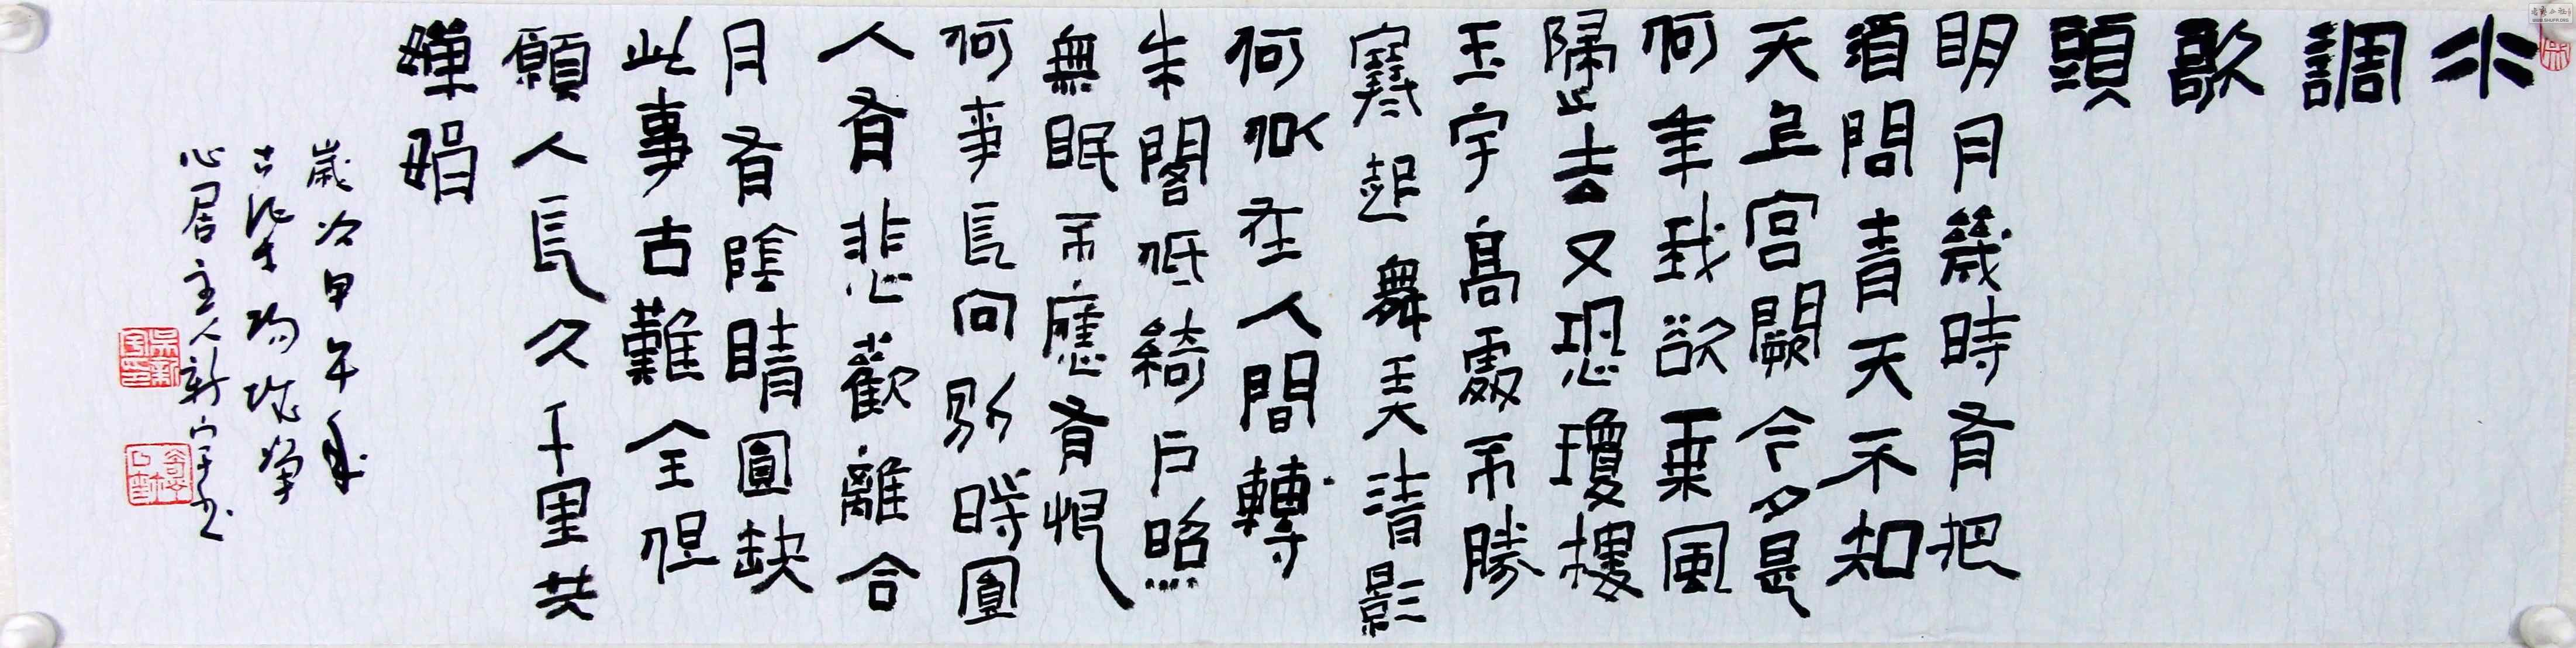 水調歌頭
明月幾時有把
酒問青天不知
天上宮闕今夕是
何年我欲乗風
歸去又恐瓊樓
玉宇高處不勝
寒起舞弄清影
何似在人間轉
朱閣低綺户照
無眠不應有恨
何事長向别時圓
人有悲歡離合
月有陰晴圓缺
此事古難全但
願人長久千里共
嬋娟
歲次甲午年
古阳城净
心居主人新宇书
吴新宇印